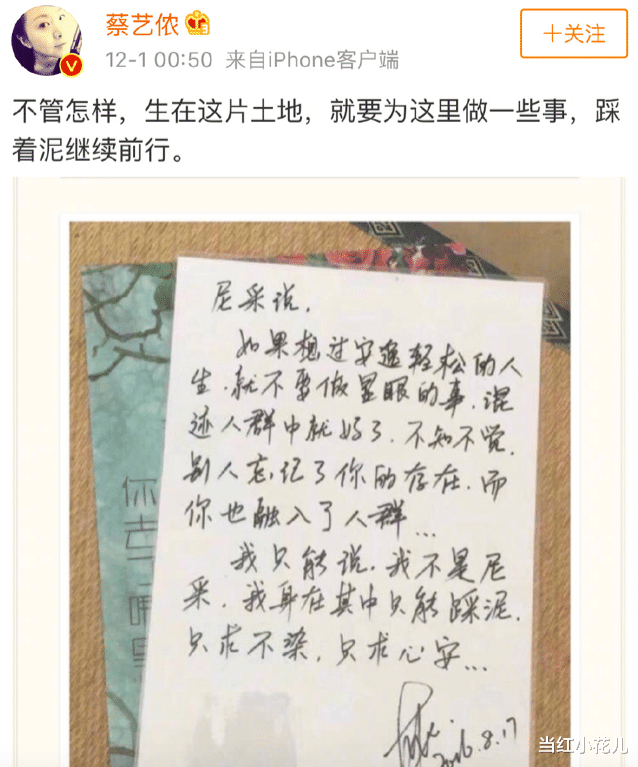 蔡艺侬
+关注
12-1 00:50 来自iPhone客户端
不管怎样，生在这片土地，就要为这里做一些事，踩
着泥继续前行。
尼采说，
如果想过安逸轻松的人
生，就不要做显眼的事，混
迹人群中就好了，不知不觉，
别人忘记了你的存在，而
你也融入了人群…
我只能说，我不是尼
采，我身在其中只能踩泥，
只求不染，只求心安…
2016.8.17
当红小花儿